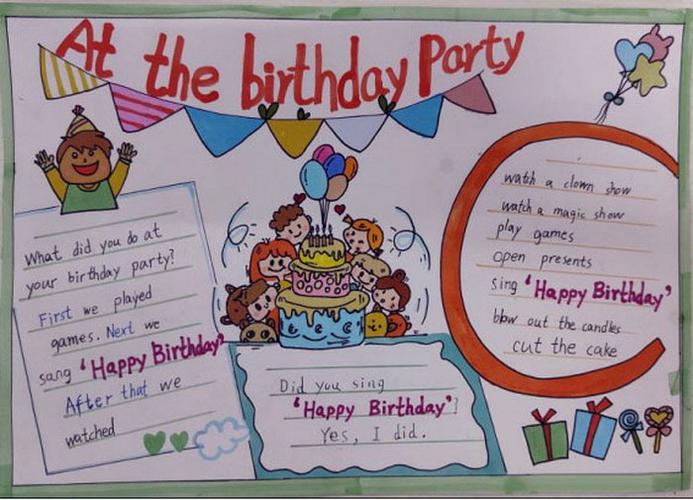 At the birthday Party
What did you do at
your birthday party?
First we played
games. Next we
sang 'Happy Birthday'
After that we
watched
Did you sing
'Happy Birthday'?
Yes, I did.
watch a clown show
watch a magic show
play games
open presents
sing 'Happy Birthday'
blow out the candles
cut the cake